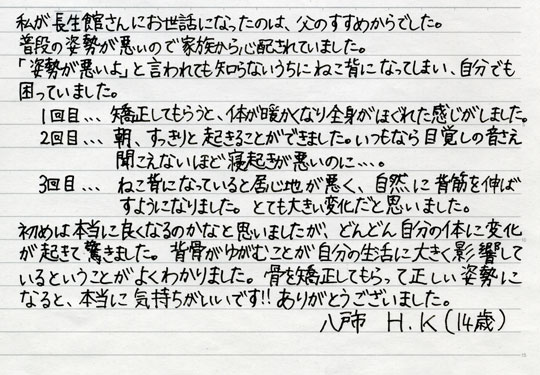 私が長生館さんにお世話になったのは、父のすすめからでした。
普段の姿勢が悪いので家族から心配されていました。
「姿勢が悪いよ」と言われても知らないうちにねこ背になってしまい、自分でも
困っていました。
1回目… 矯正してもらうと、体が暖かくなり全身がほぐれた感じがしました。
2回目… 朝、すっきりと起きることができました。いつもなら目覚しの音さえ
聞こえないほど寝起きが悪いのに…。
3回目… ねこ背になっていると居心地が悪く、自然に背筋を伸ば
すようになりました。とても大きい変化だと思いました。
初めは本当に良くなるのかなと思いましたが、どんどん自分の体に変化
が起きて驚きました。背骨がゆがむことが自分の生活に大きく影響して
いるということがよくわかりました。骨を矯正してもらって正しい姿勢に
なると、本当に気持ちがいいです!! ありがとうございました。
八戸市 H.K(14歳)